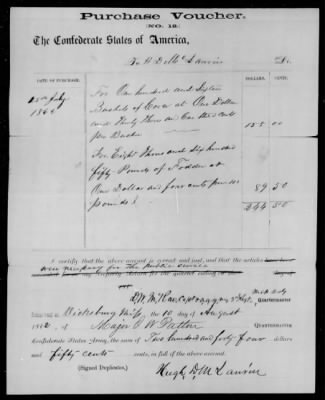 Purchase Voucher.
(NO. 12.)
The Confederate States of America,
To H D McLaurin Dr.
DATE OF PURCHASE. DOLLARS. CENTS.
15th July For One hundred and Sixteen
1862 Bushels of Corn at One Dollar
and Thirty Three and One third cents
per Bushel 155 00
For Eight Thous and Six hundred
fifty Pounds of Fodder at
One Dollar and four cents pr hund
pounds 89 50
244 50
I certify that the above account is correct and just, and that the articles
were necessary for the public service
Quartermaster
RECEIVED at Vicksburg Miss, the 10 day of August
1862, of Major L W Patton Quartermaster
Confederate States Army, the sum of Two hundred and forty four dollars
and fifty cents, in full of the above account.
(Signed Duplicates.) Hugh D. McLaurin